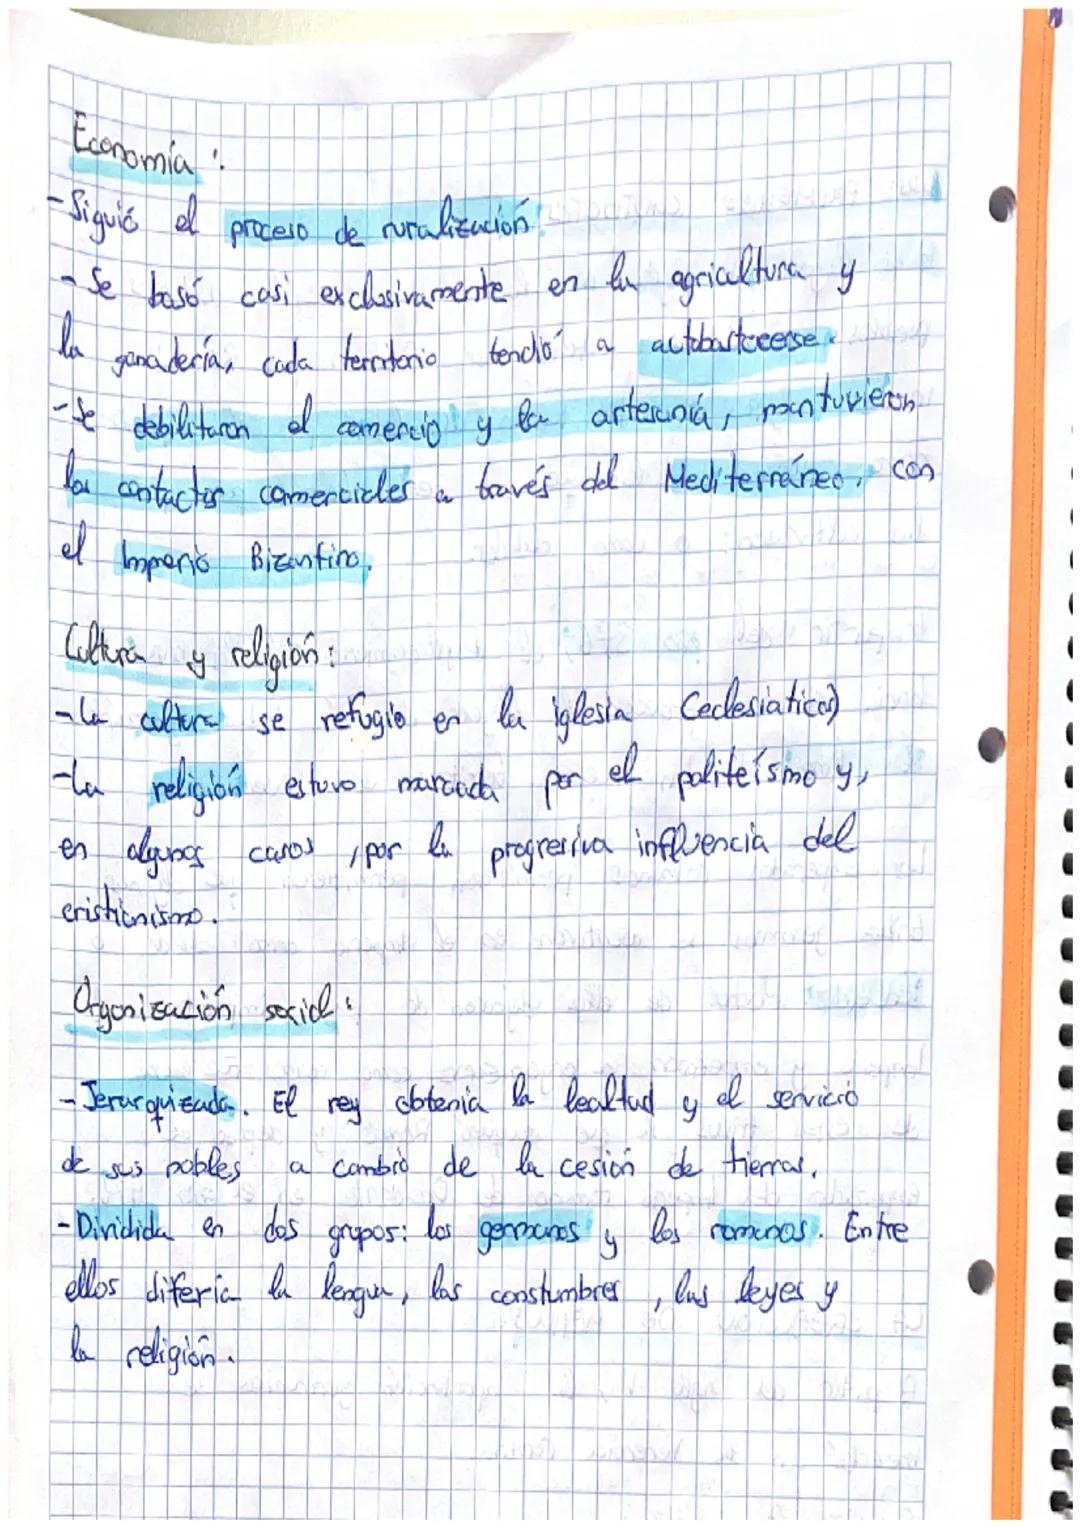 Economía:
- Siguió el proceso de ruralización.
- Se basó casi exclusivamente en la agricultura y
la ganadería, cada territorio tendió a
- Se debilitaron el comercio y la artesanía, mantuvieron
los contactos comerciales a través del Mediterráneo, con
el Imperio Bizantino.
Cultura y religión:
- La cultura se refugio en la iglesia (eclesiaticos)
- La religión estuvo marcada por el politeísmo y,
en algunos casos, por la progresiva influencia del
cristianismo.
Organización social:
- Jerarquizada. El rey obtenia la lealtud y el servicio
de sus nobles a cambio de la cesión de tierras.
- Dividida en dos grupos: los germanos y los romanos. Entre
ellos difería la lengua, las constumbres, las leyes y
la religión.